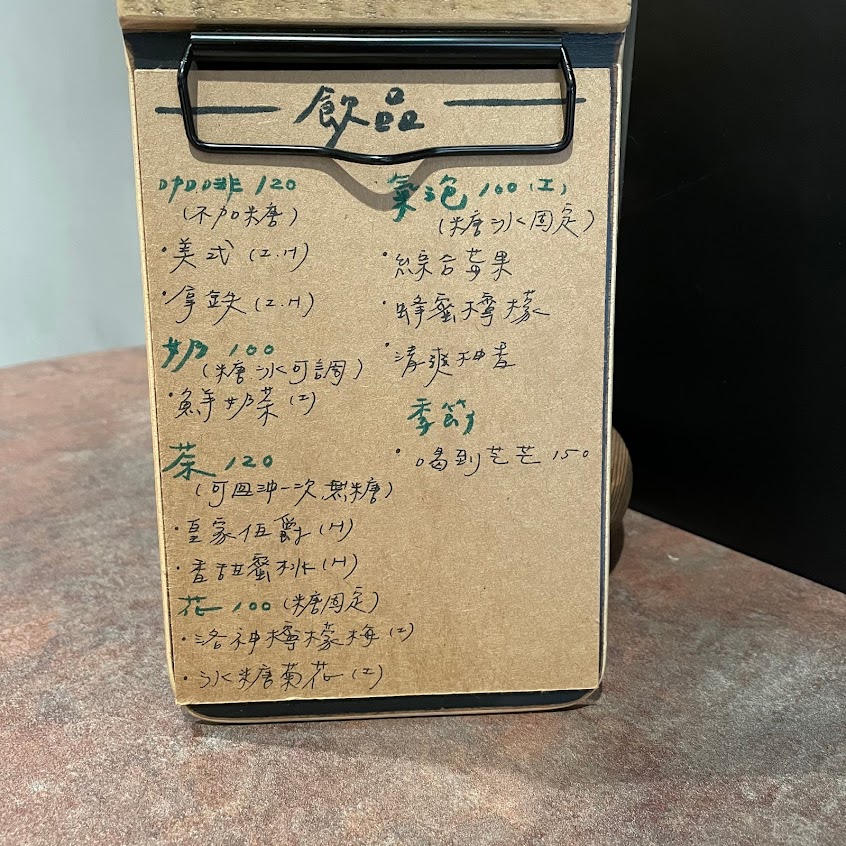 飲品
咖啡 120
(不加糖)
·美式 (I.H)
·拿鐵 (I.H)
奶 100
(糖冰可調)
·鮮奶茶 (I)
茶 120
(可回沖一次,無糖)
·皇家伯爵 (H)
·香甜蜜桃 (H)
花 100 (糖固定)
·洛神檸檬梅 (I)
·冰糖菊花 (I)
氣泡 100 (I)
(糖冰固定)
·綜合莓果
·蜂蜜檸檬
·清爽柚香
季節
·喝到芒芒 150